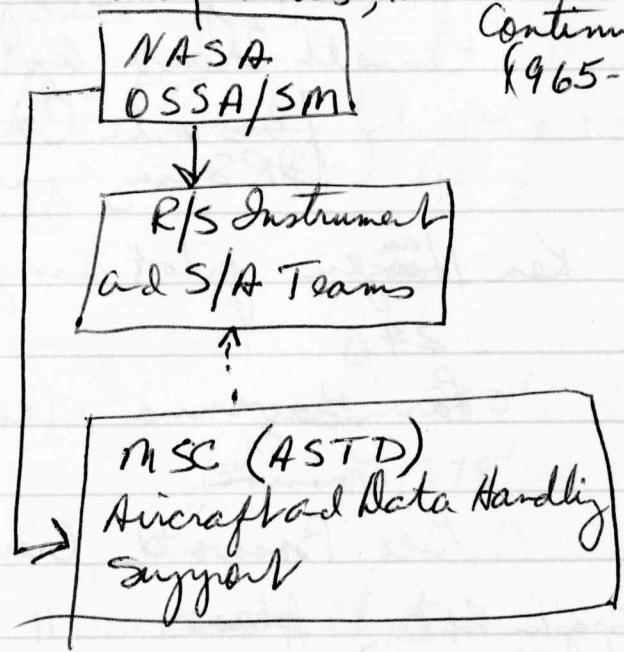 Continu
1965-
NASA
OSSA/SM
R/S Instrument
and S/A Teams
MSC (ASTD)
Aircraft and Data Handling
Support